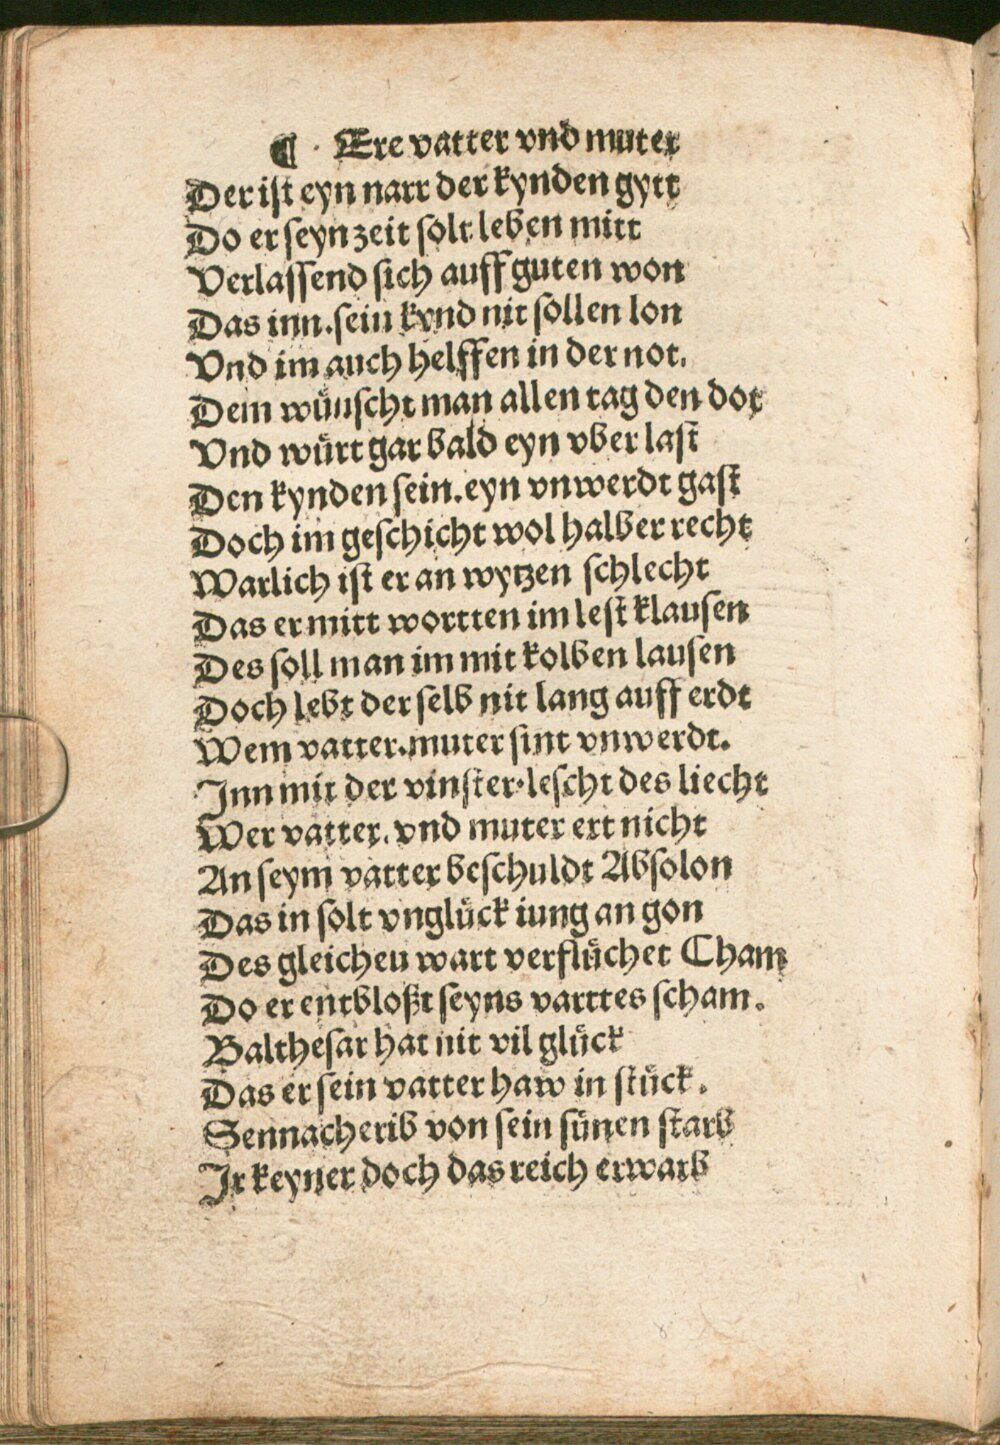 ¶ · Ere vatter vnd muter
Der ist eyn narr der kynden gytt
Do er seyn zeit solt leben mitt
Verlassend sich auff guten won
Das inn.sein kynd nit sollen lon
Vnd im auch helffen in der not.
Dem wuͤnscht man allen tag den dot
Vnd wuͤrt gar bald eyn vber last
Den kynden sein.eyn vnwerdt gast
Doch im geschicht wol halber recht
Warlich ist er an wytzen schlecht
Das er mitt wortten im lest klausen
Des soll man im mit kolben lausen
Doch lebt der selb nit lang auff erdt
Wem vatter.muter sint vnwerdt.
Inn mit der vinster·lescht des liecht
Wer vatter. vnd muter ert nicht
An seym vatter beschuldt Absolon
Das in solt vngluͤck iung an gon
Des gleichen wart verfluͤchet Cham
Do er entbloßt seyns varttes scham.
Balthesar hat nit vil gluͤck
Das er sein vatter haw in stuͤck.
Sennacherib von sein suͤnen starb
Ir keyner doch das reich erwarb